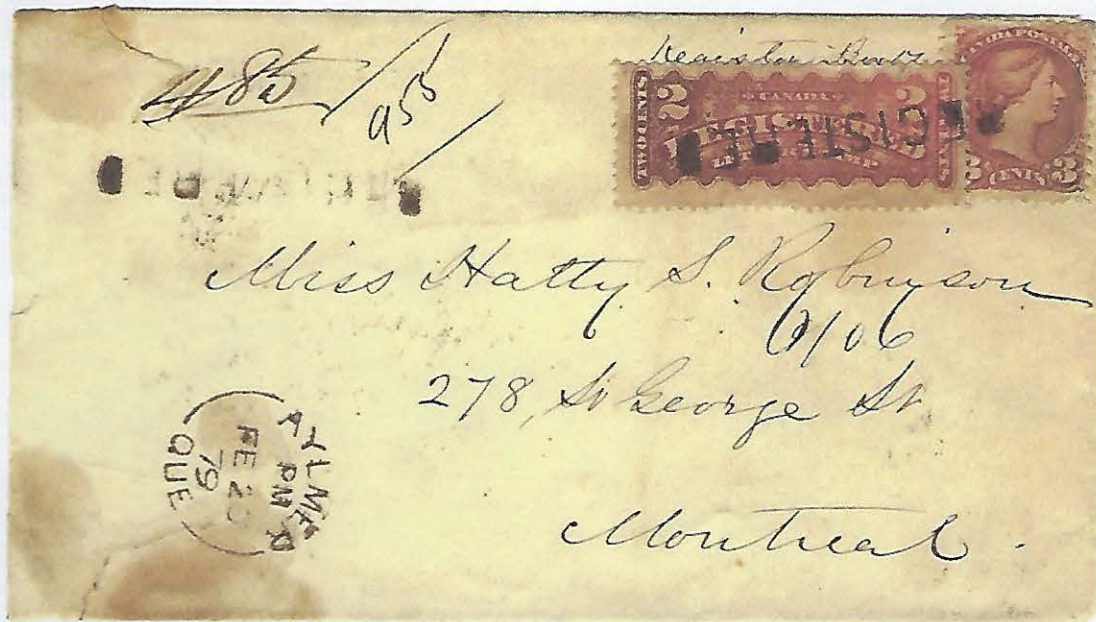 485 / 955
2 CANADA 2
TWO CENTS
REGISTERED
LETTER STAMP
CANADA POSTAGE
3 CENTS 3
Miss Hatty S. Robinson
278, St George St
Montreal.
AYLMER
PM
FE 20
79
QUE